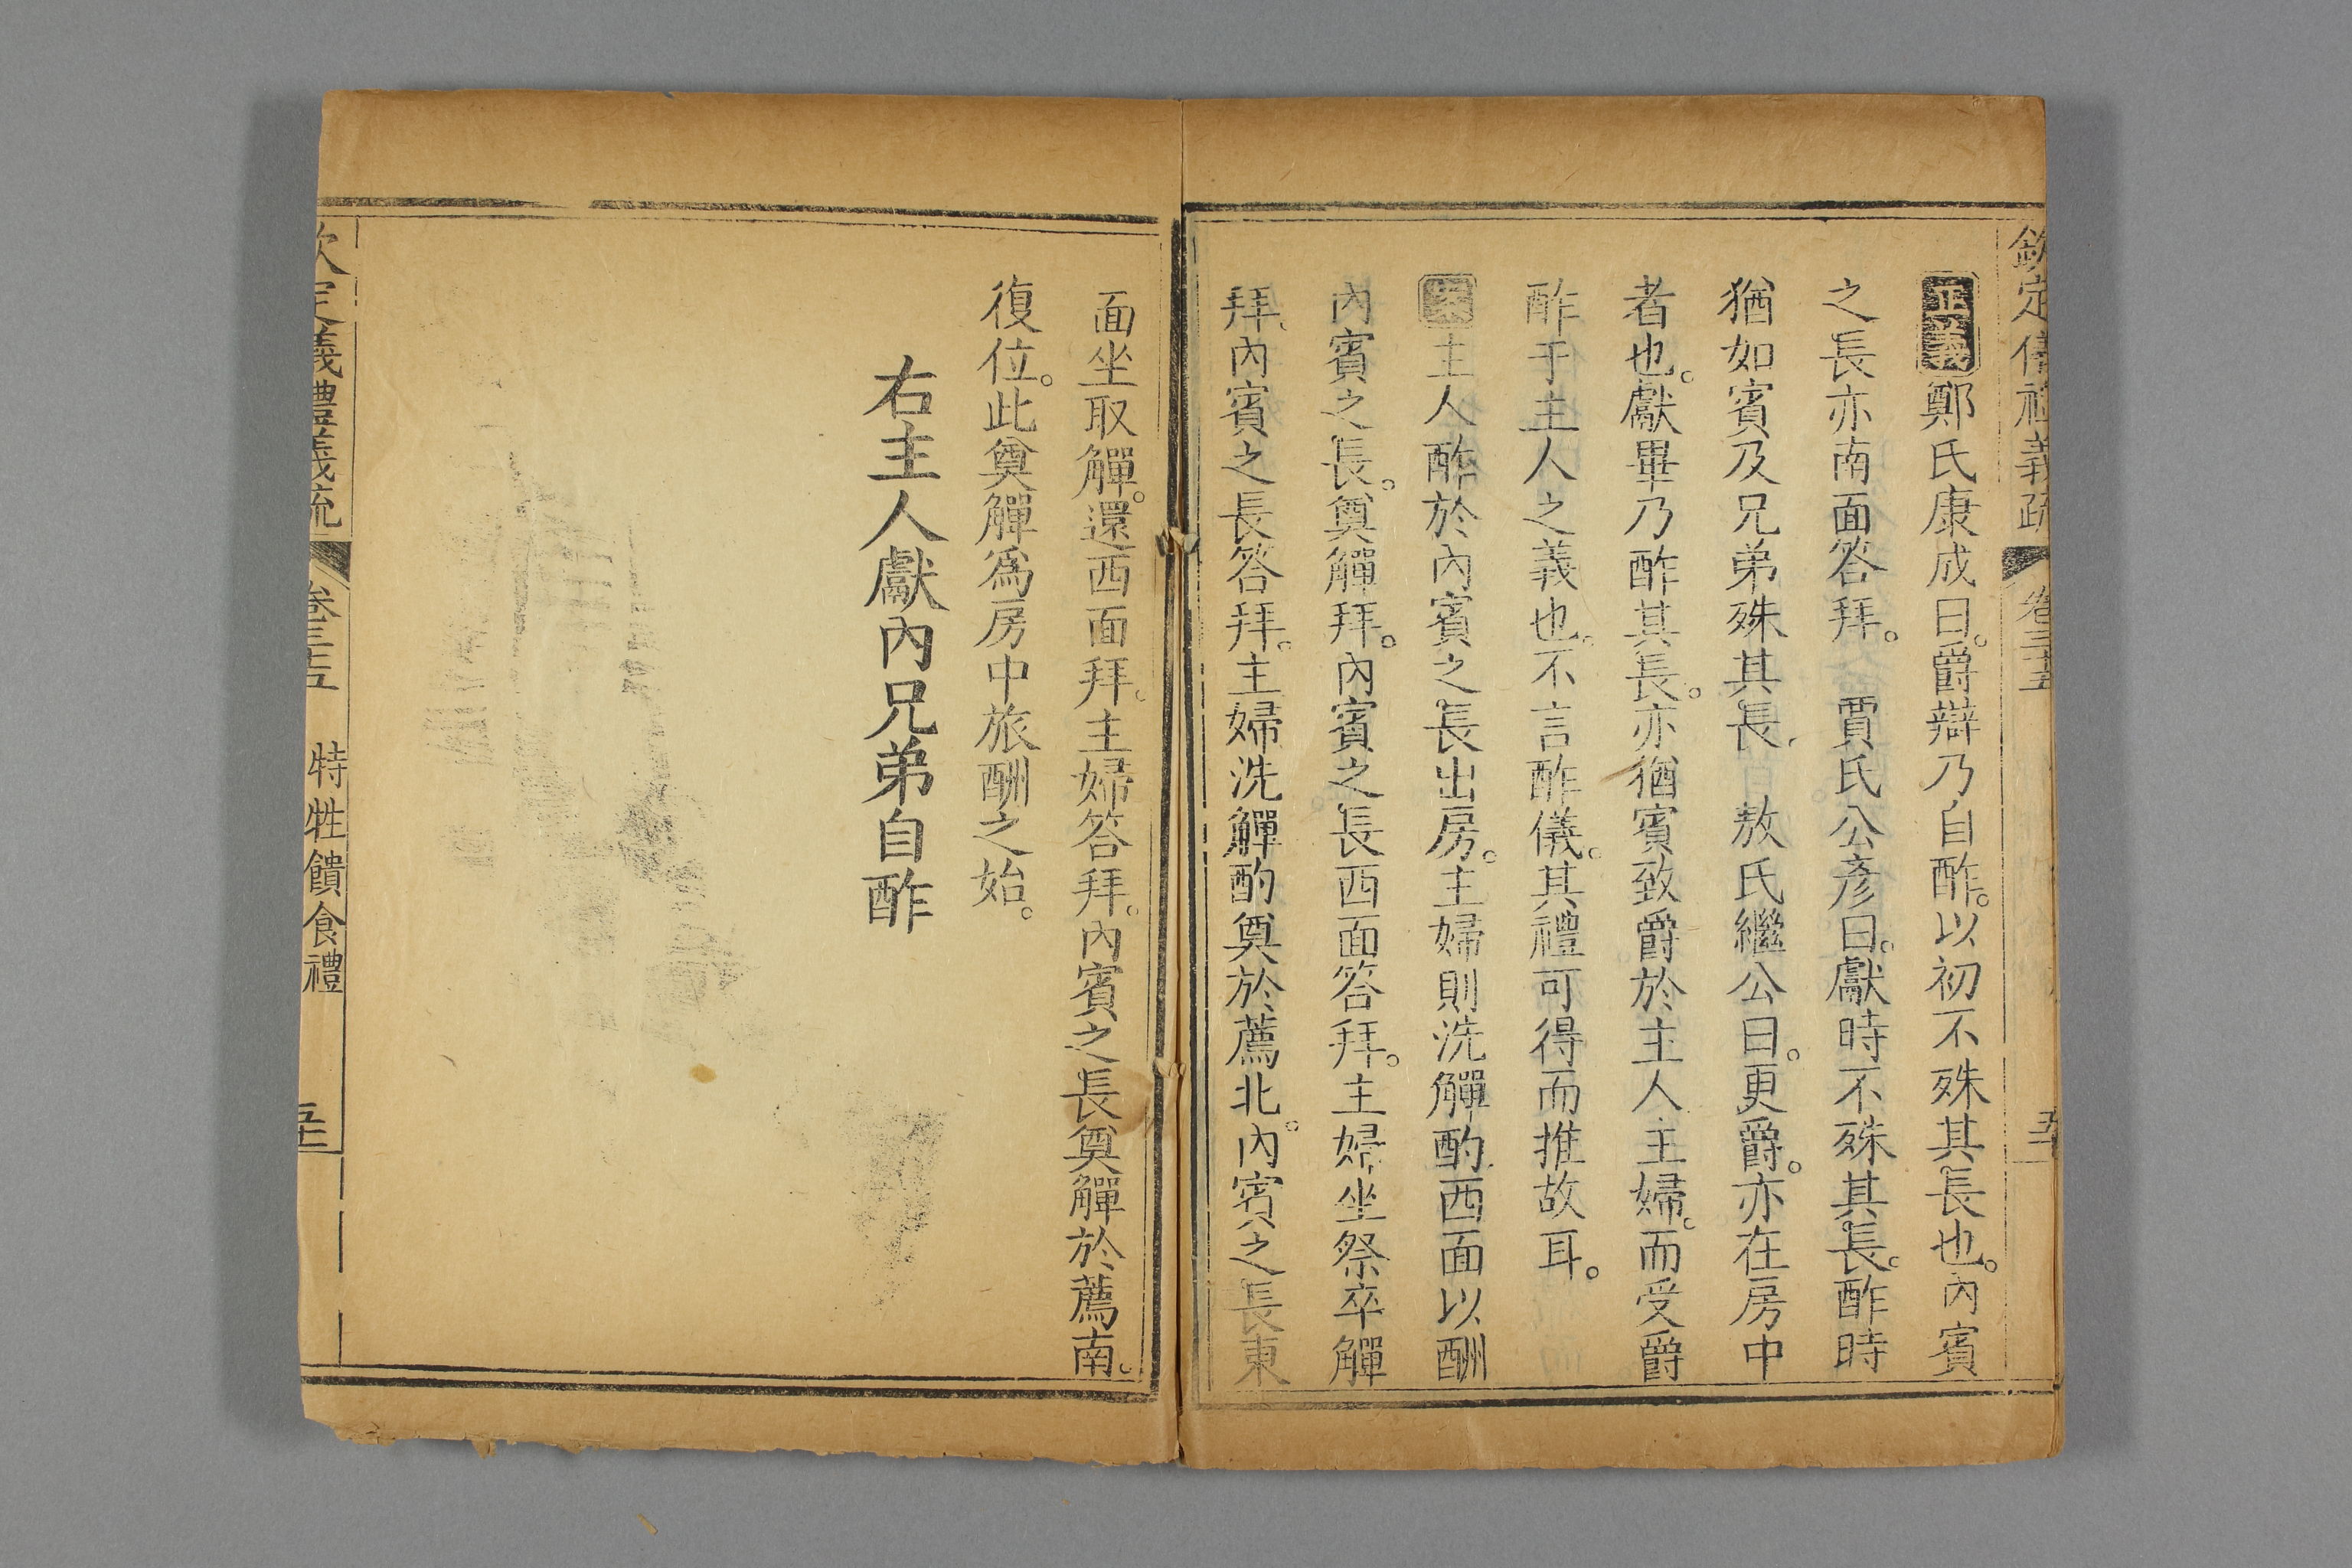 欽定儀禮義疏 卷三十五 五十
正義鄭氏康成曰。爵辯乃自酢。以初不殊其長也。內賓
之長亦南面答拜。 賈氏公彥曰。獻時不殊其長。酢時
猶如賓及兄弟殊其長。 敖氏繼公曰。更爵。亦在房中
者也。獻畢乃酢其長。亦猶賓致爵於主人主婦。而受爵
酢于主人之義也。不言酢儀。其禮可得而推故耳。
案主人酢於內賓之長出房。主婦則洗觶酌西面以酬
內賓之長。奠觶拜。內賓之長西面答拜。主婦坐祭卒觶
拜。內賓之長答拜。主婦洗觶酌奠於薦北。內賓之長東
面坐取觶。還西面拜。主婦答拜。內賓之長奠觶於薦南。
復位。此奠觶爲房中旅酬之始。
右主人獻內兄弟自酢
欽定儀禮義疏 卷三十五 特牲饋食禮